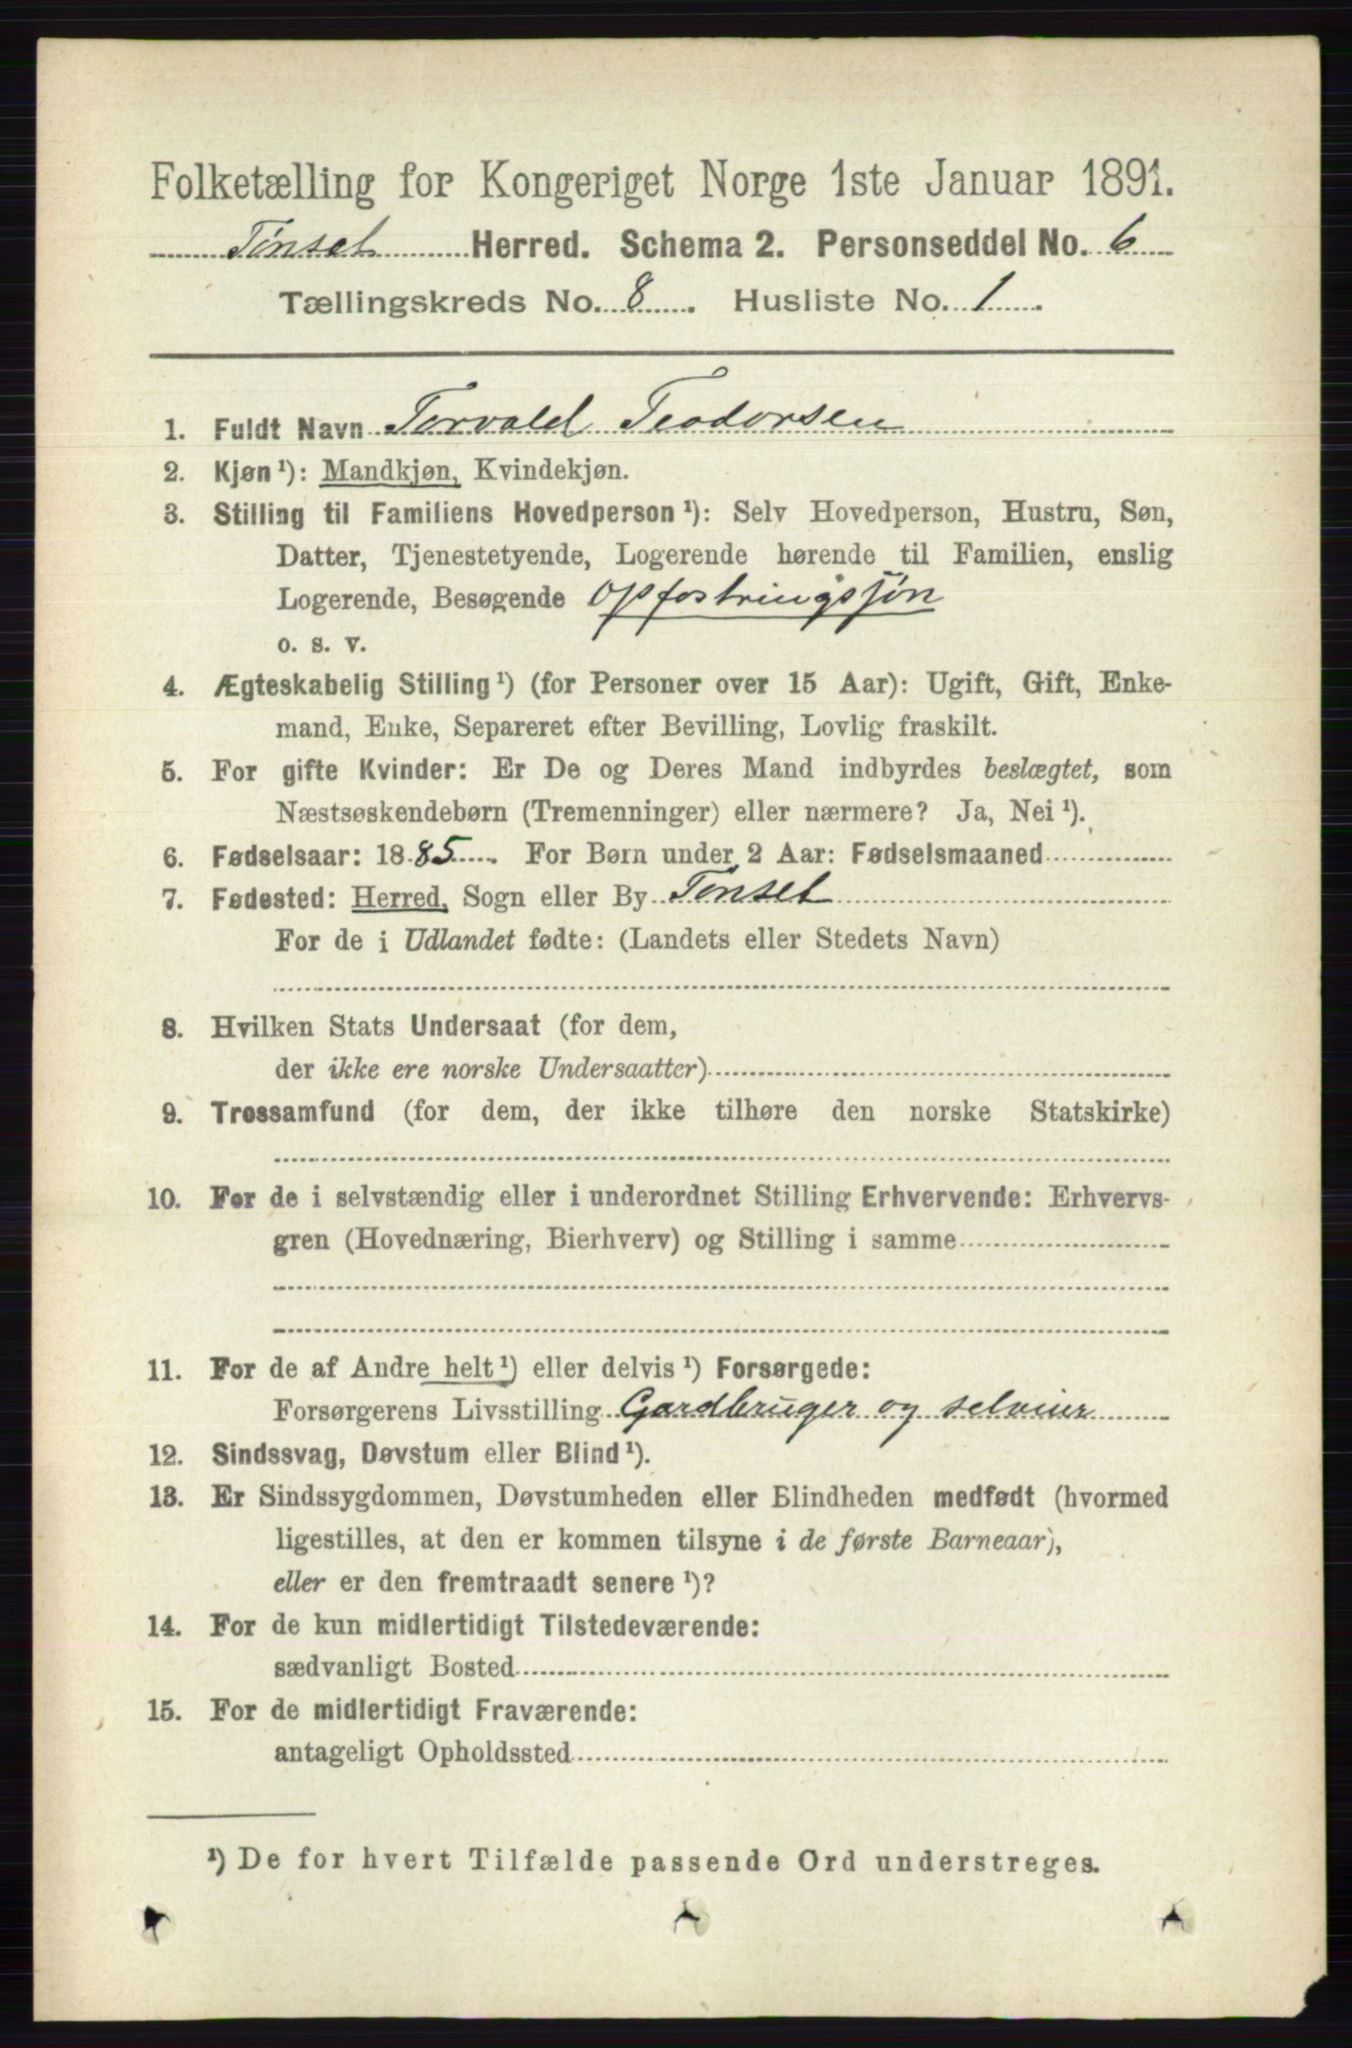 Folketælling for Kongeriget Norge 1ste Januar 1891.
Tønset Herred. Schema 2. Personseddel No. 6
Tællingskreds No. 8. Husliste No. 1.
1. Fuldt Navn Torvald Teodorsen
2. Kjøn¹): Mandkjøn, Kvindekjøn.
3. Stilling til Familiens Hovedperson¹): Selv Hovedperson, Hustru, Søn,
Datter, Tjenestetyende, Logerende hørende til Familien, enslig
Logerende, Besøgende opfostringssøn
o. s. v.
4. Ægteskabelig Stilling¹) (for Personer over 15 Aar): Ugift, Gift, Enke-
mand, Enke, Separeret efter Bevilling, Lovlig fraskilt.
5. For gifte Kvinder: Er De og Deres Mand indbyrdes beslægtet, som
Næstsøskendebørn (Tremenninger) eller nærmere? Ja, Nei¹).
6. Fødselsaar: 1885. For Børn under 2 Aar: Fødselsmaaned
7. Fødested: Herred, Sogn eller By Tønset
For de i Udlandet fødte: (Landets eller Stedets Navn)
8. Hvilken Stats Undersaat (for dem,
der ikke ere norske Undersaatter)
9. Trossamfund (for dem, der ikke tilhøre den norske Statskirke)
10. For de i selvstændig eller i underordnet Stilling Erhvervende: Erhvervs-
gren (Hovednæring, Bierhverv) og Stilling i samme
11. For de af Andre helt¹) eller delvis¹) Forsørgede:
Forsørgerens Livsstilling Gardbruger og selveier
12. Sindssvag, Døvstum eller Blind¹).
13. Er Sindssygdommen, Døvstumheden eller Blindheden medfødt (hvormed
ligestilles, at den er kommen tilsyne i de første Barneaar),
eller er den fremtraadt senere¹)?
14. For de kun midlertidigt Tilstedeværende:
sædvanligt Bosted
15. For de midlertidigt Fraværende:
antageligt Opholdssted
¹) De for hvert Tilfælde passende Ord understreges.